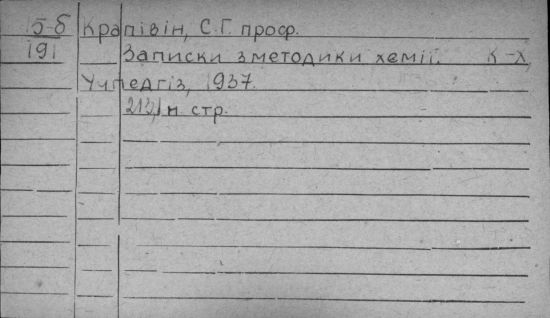 15-б Крапівін, С.Г. проф.
191 Записки з методики хемії. К-Х,
Учпедгіз, 1937.
213,1 н стр.